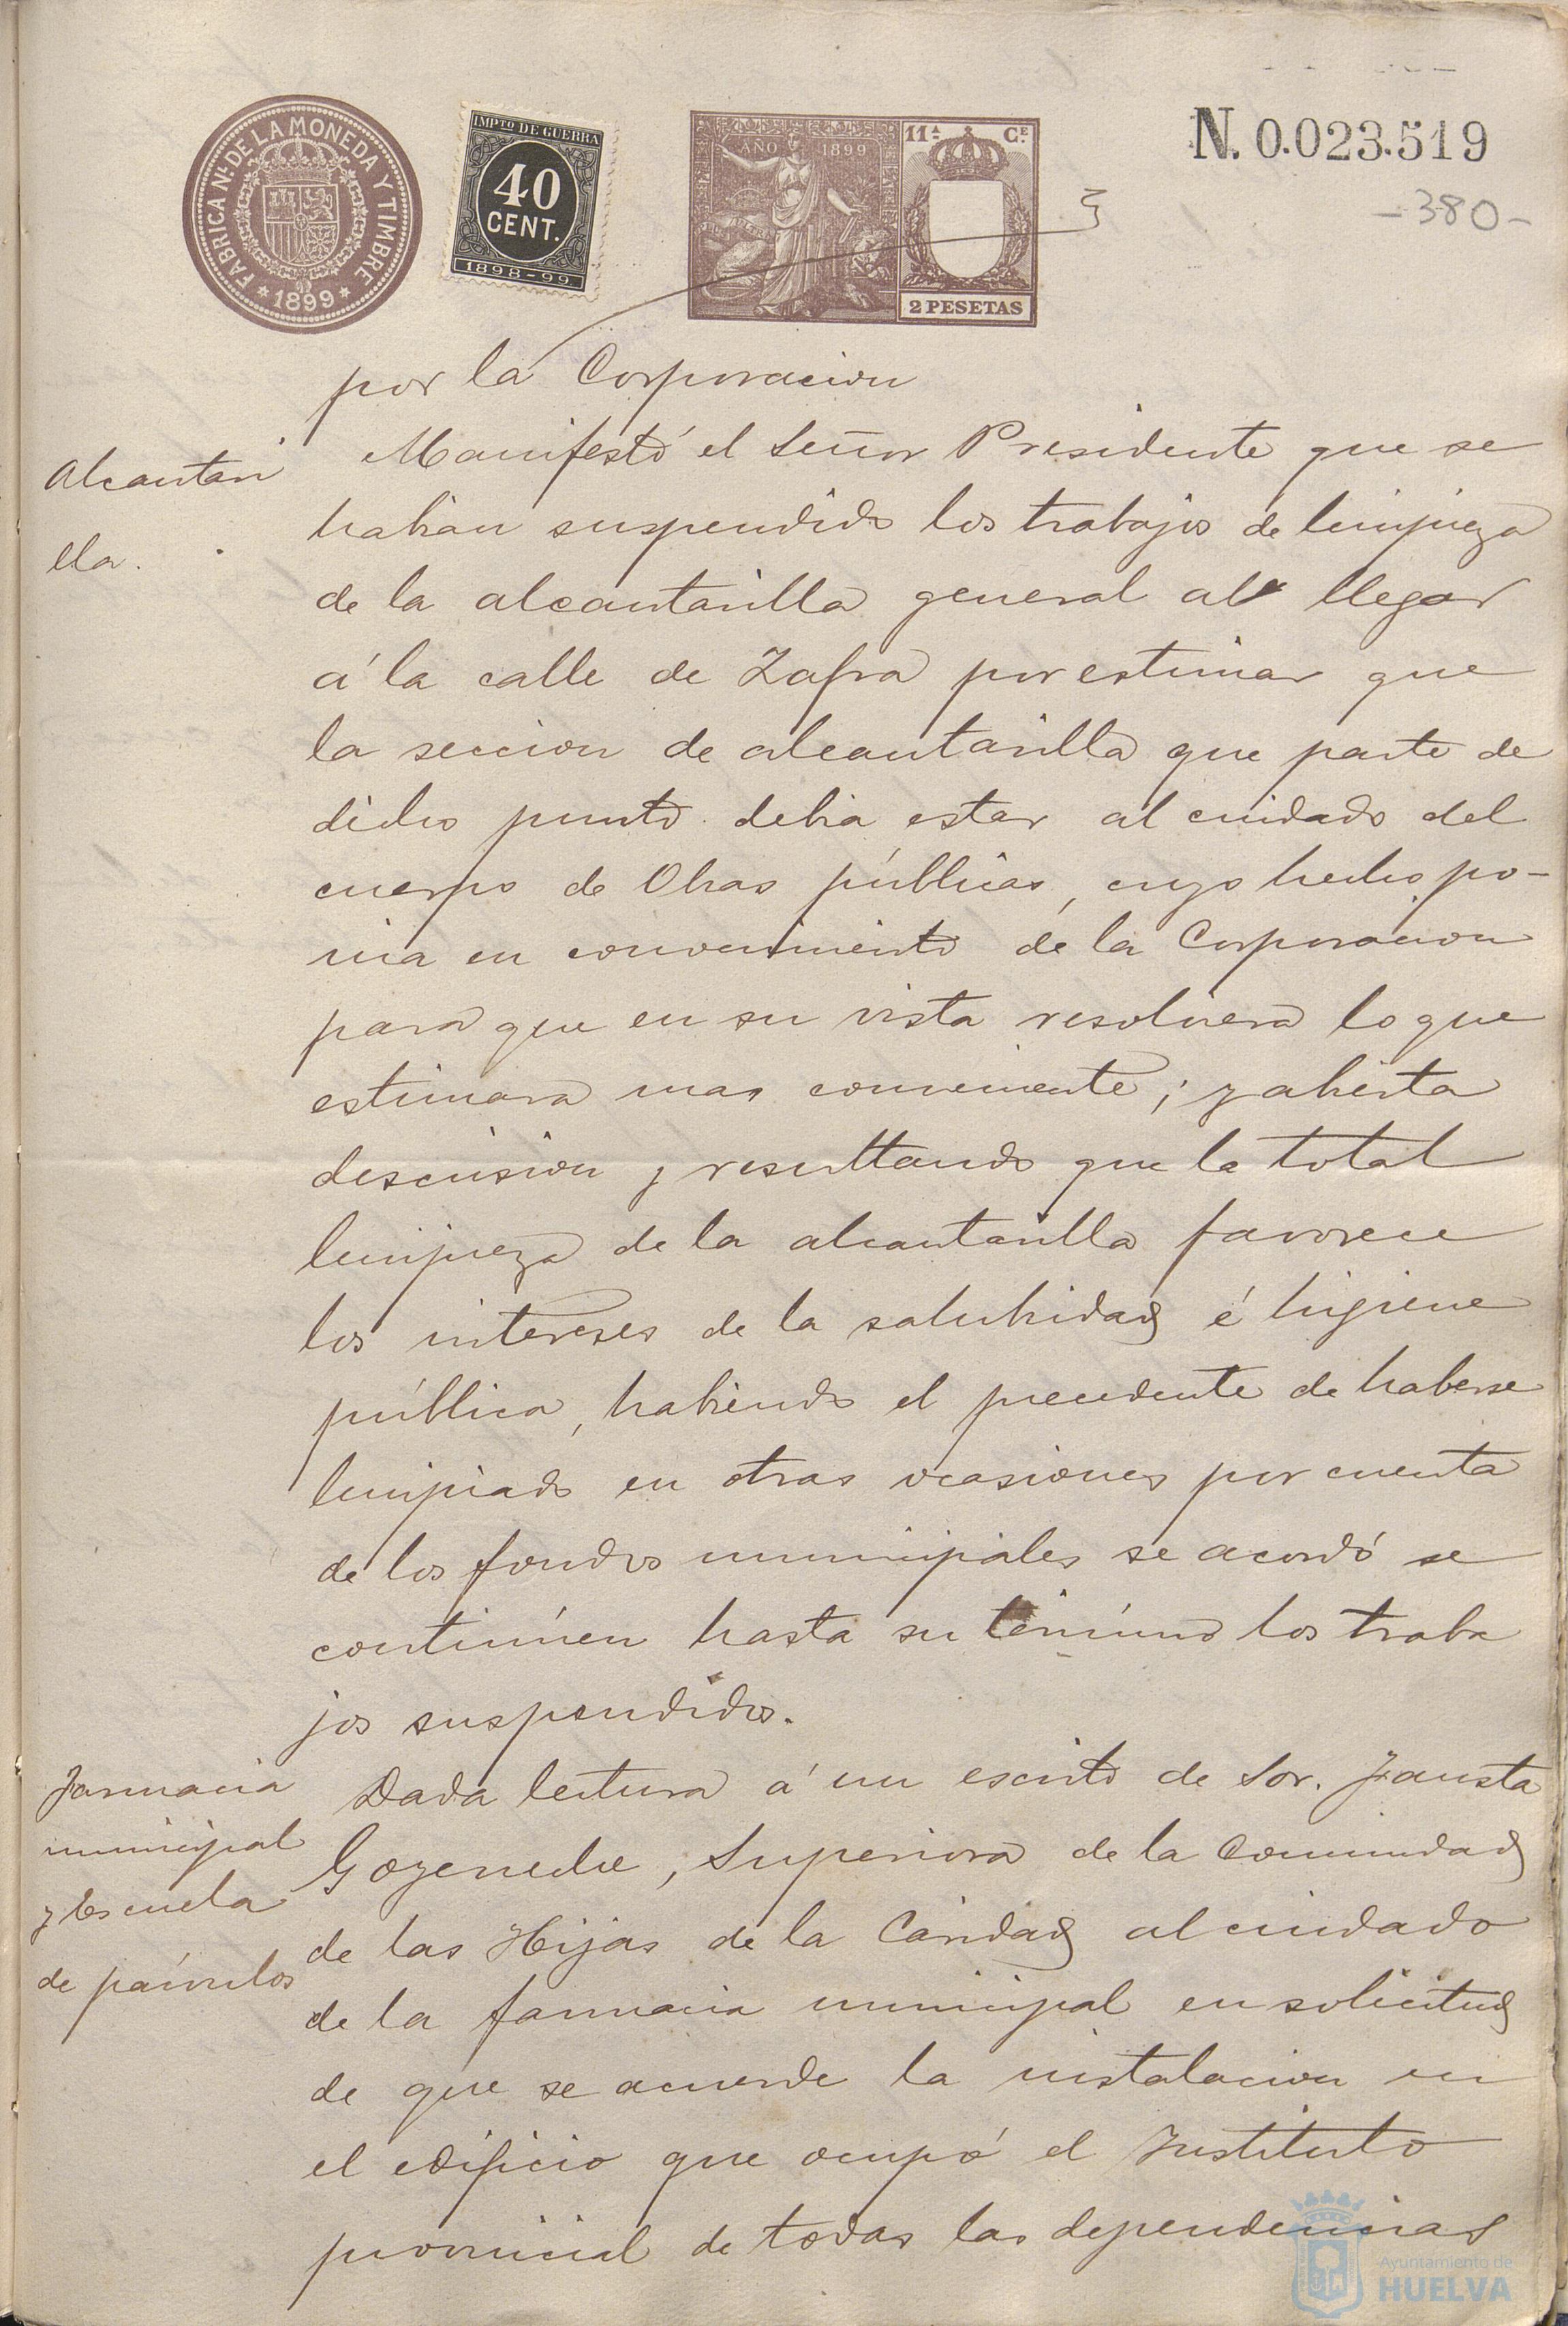 FABRICA Nal. DE LA MONEDA Y TIMBRE
* 1899 *
IMPTO DE GUERRA
40
CENT.
1898-99
AÑO 1899
11ª CE.
2 PESETAS
N. 0.023.519
-380-
por la Corporacion
Alcantari
lla.
Manifestó el Señor Presidente que se
habian suspendido los trabajos de limpieza
de la alcantarilla general al llegar
á la calle de Zafra por estimar que
la seccion de alcantarilla que parte de
dicho punto debia estar al cuidado del
cuerpo de Obras públicas, cuyo hecho po-
nia en conocimiento de la Corporacion
para que en su vista resolviera lo que
estimara mas conveniente; y abierta
descusion y resultando que la total
limpieza de la alcantarilla favorece
los intereses de la salubridad é higiene
pública, habiendo el precedente de haberse
limpiado en otras ocasiones por cuenta
de los fondos municipales se acordó se
continúen hasta su término los traba
jos suspendidos.
Farmacia
municipal
y Escuela
de párvulos
Dada lectura á un escrito de Sor. Fausta
Goyeneche, Superiora de la Comunidad
de las Hijas de la Caridad al cuidado
de la farmacia municipal en solicitud
de que se acuerde la instalacion en
el edificio que ocupó el Instituto
provincial de todas las dependencias
Ayuntamiento de
HUELVA